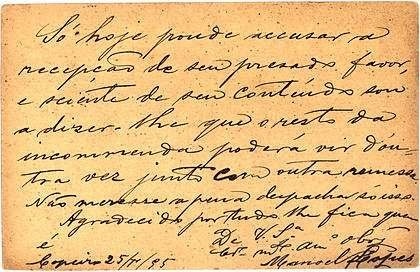 Só hoje poude accusar a
recepção de seu presado favor,
e sciente de seu contiudo sou
a dizer-lhe que o resto da
incommenda poderá vir d'ou-
tra vez junto com outra remessa
Não merece a pena despachar so isso.
Agradecido por tudo lhe fica que
é
De V. Sª
mto amº obrº
25/ /95
Manoel